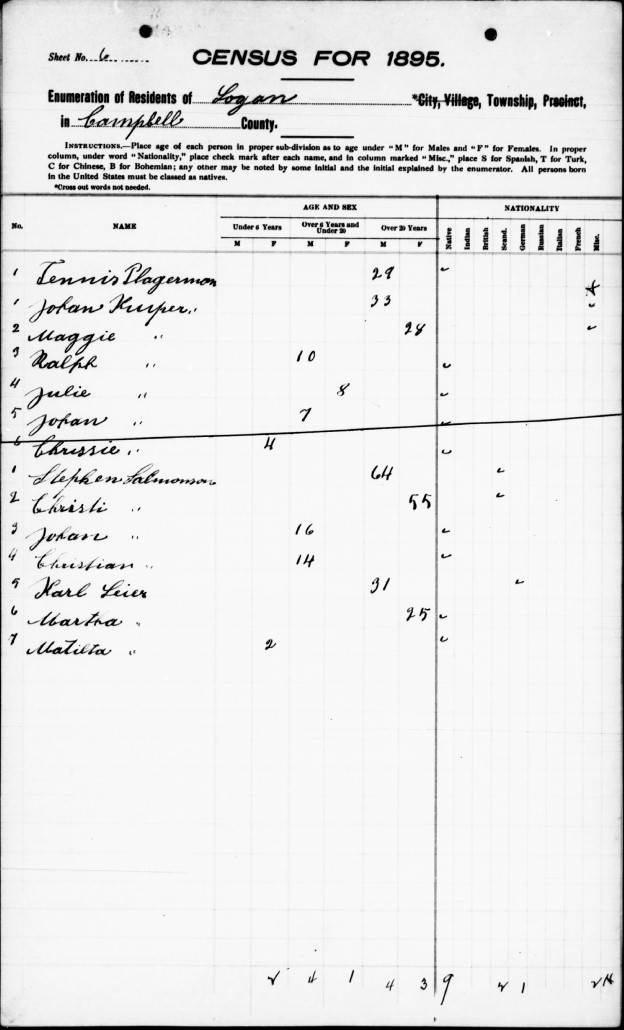 Sheet No. 6
CENSUS FOR 1895.
Enumeration of Residents of Logan *City, Village, Township, Precinct,
in Campbell County.
INSTRUCTIONS.—Place age of each person in proper sub-division as to age under "M" for Males and "F" for Females. In proper
column, under word "Nationality," place check mark after each name, and in column marked "Misc.," place S for Spanish, T for Turk,
C for Chinese, B for Bohemian; any other may be noted by some initial and the initial explained by the enumerator. All persons born
in the United States must be classed as natives.
*Cross out words not needed.
No. NAME AGE AND SEX NATIONALITY
Under 6 Years Over 6 Years and Under 20 Over 20 Years
M F M F M F Native Indian British Scand. German Russian Italian French Misc.
1 Tennis Plagerman 29 ✓
1 Johan Kuiper " 33 ✓
2 Maggie " 28 ✓
3 Ralph " 10 ✓
4 Julie " 8 ✓
5 Johan " 7 ✓
6 Chrissie " 4 ✓
1 Stephen Salmonson 64 ✓
2 Christi " 55 ✓
3 Johan " 16 ✓
4 Christian " 14 ✓
5 Karl Leier 31 ✓
6 Martha " 25 ✓
7 Matilta " 2 ✓
2 4 1 4 3 9 2 1 2